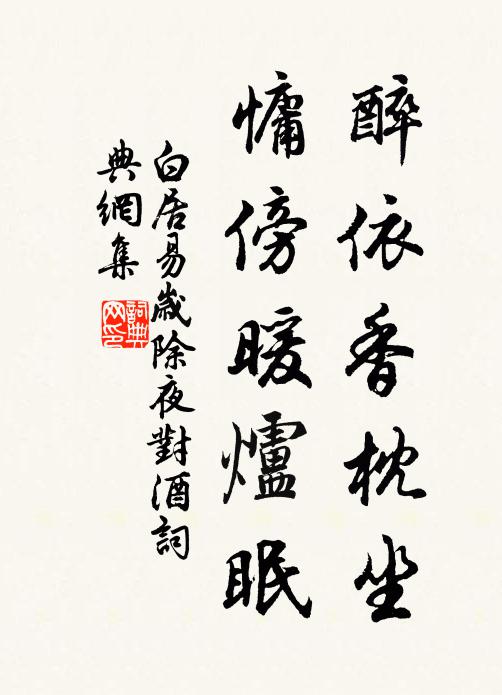 醉依香枕坐
慵傍暖爐眠
白居易歲除夜對酒詞
典網集
詞典
网印